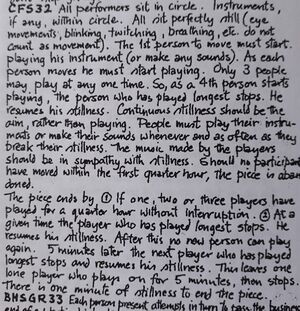 CF532. All performers sit in circle. Instruments,
if any, within circle. All sit perfectly still (eye
movements, blinking, twitching, breathing, etc. do not
count as movement). The 1st person to move must start
playing his instrument (or make any sounds). As each
person moves he must start playing. Only 3 people
may play at any one time. So, as a 4th person starts
playing, the person who has played longest stops. He
resumes his stillness. Continuous stillness should be the
aim, rather than playing. People must play their instru-
ments or make their sounds whenever and as often as they
break their stillness. The music made by the players
should be in sympathy with stillness. Should no participant
have moved within the first quarter hour, the piece is aban
doned.
The piece ends by ① If one, two or three players have
played for a quarter hour without interruption. ② At a
given time the player who has played longest stops. He
resumes his stillness. After this no new person can play
again. 5 minutes later the next player who has played
longest stops and resumes his stillness. This leaves one
lone player who plays on for 5 minutes, then stops.
There is one minute of stillness to end the piece.
BHSGR33 Each person present attempts in turn to pass the business